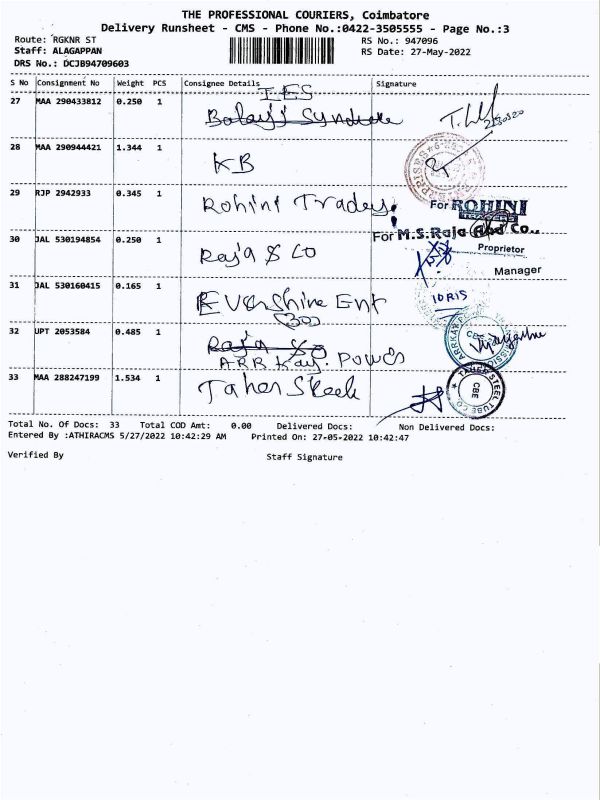 THE PROFESSIONAL COURIERS, Coimbatore
Delivery Runsheet - CMS - Phone No.:0422-3505555 - Page No.:3
Route: RGKNR ST RS No.: 947096
Staff: ALAGAPPAN RS Date: 27-May-2022
DRS No.: DCJB94709603
S No Consignment No Weight PCS Consignee Details Signature
IES
27 MAA 290433812 0.250 1 Balaji Syndicate
28 MAA 290944421 1.344 1
KB
29 RJP 2942933 0.345 1 Rohini Traders
For ROHINI
For M.S.Raja And Co.,
30 JAL 530194854 0.250 1 Raja & Co
Proprietor
Manager
31 JAL 530160415 0.165 1 Evershine Ent
IDRIS
32 UPT 2053584 0.485 1 Raja & Co
ARR Kay. Powds
33 MAA 288247199 1.534 1 Taher Steel
TAHER STEEL TUBE CO.
CBE
Total No. Of Docs: 33 Total COD Amt: 0.00 Delivered Docs: Non Delivered Docs:
Entered By :ATHIRACMS 5/27/2022 10:42:29 AM Printed On: 27-05-2022 10:42:47
Verified By Staff Signature